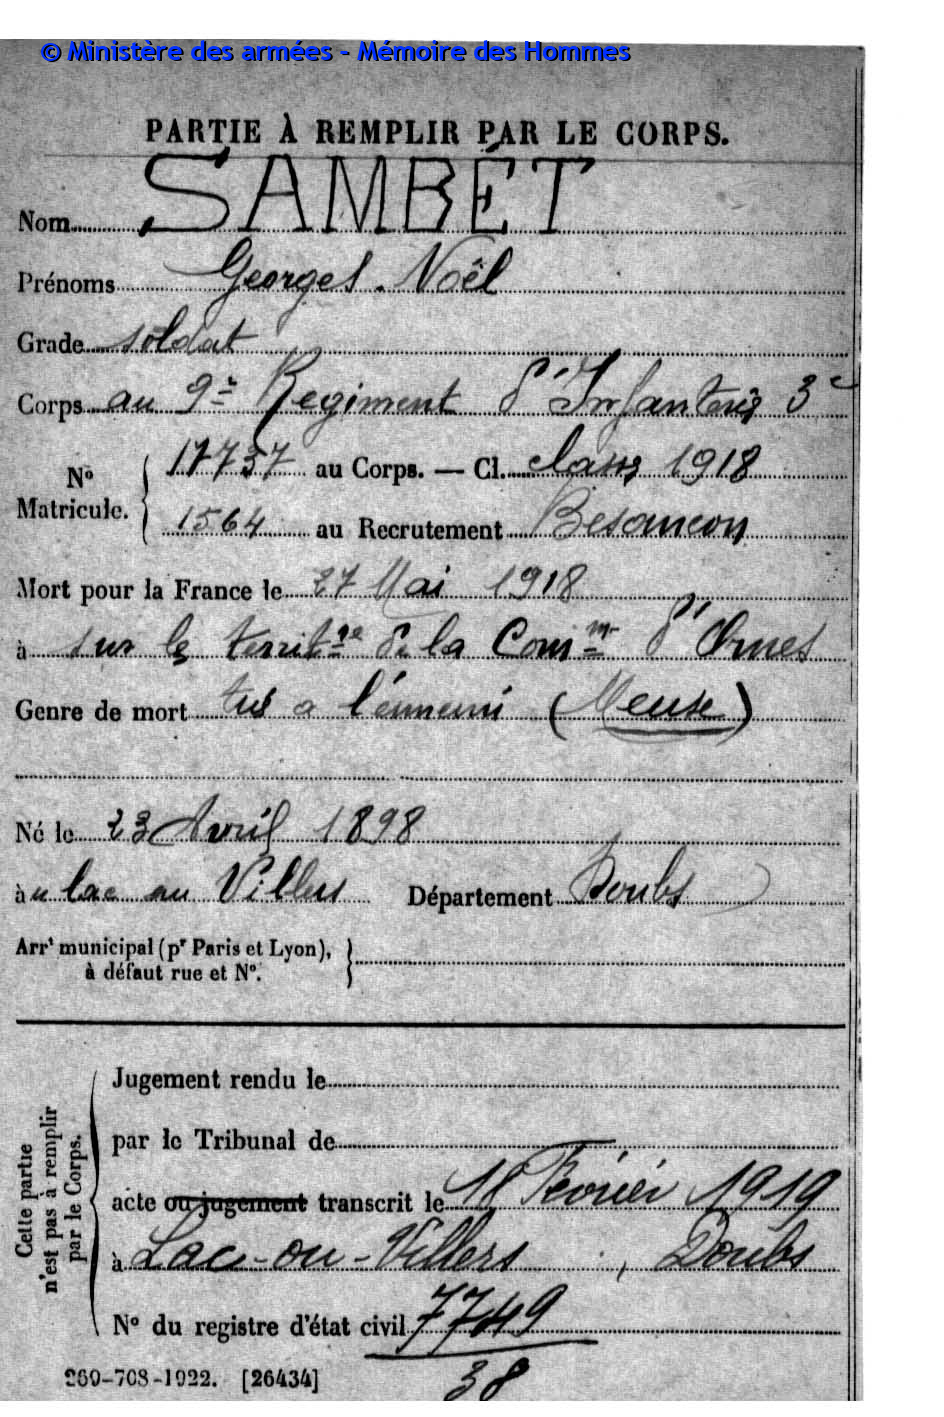 © Ministère des armées - Mémoire des Hommes
PARTIE À REMPLIR PAR LE CORPS.
Nom SAMBÉT
Prénoms Georges. Noël
Grade soldat
Corps au 9e Regiment d'Infanterie 3e
No Matricule. { 17737 au Corps. — Cl. classe 1918
1564 au Recrutement Besancon
Mort pour la France le 27 Mai 1918
à sur le territre de la Comm d'Ornes
Genre de mort tué a l'énnemi (Meuse)
Né le 23 Avril 1898
à u lac au Villers Département Doubs
Arrt municipal (pr Paris et Lyon),
à défaut rue et N°.
Cette partie
n'est pas à remplir
par le Corps.
Jugement rendu le
par le Tribunal de
acte ou jugement transcrit le 18 Février 1919
à Lac-ou-Villers, Doubs
N° du registre d'état civil 7749
38
260-708-1922. [26434]